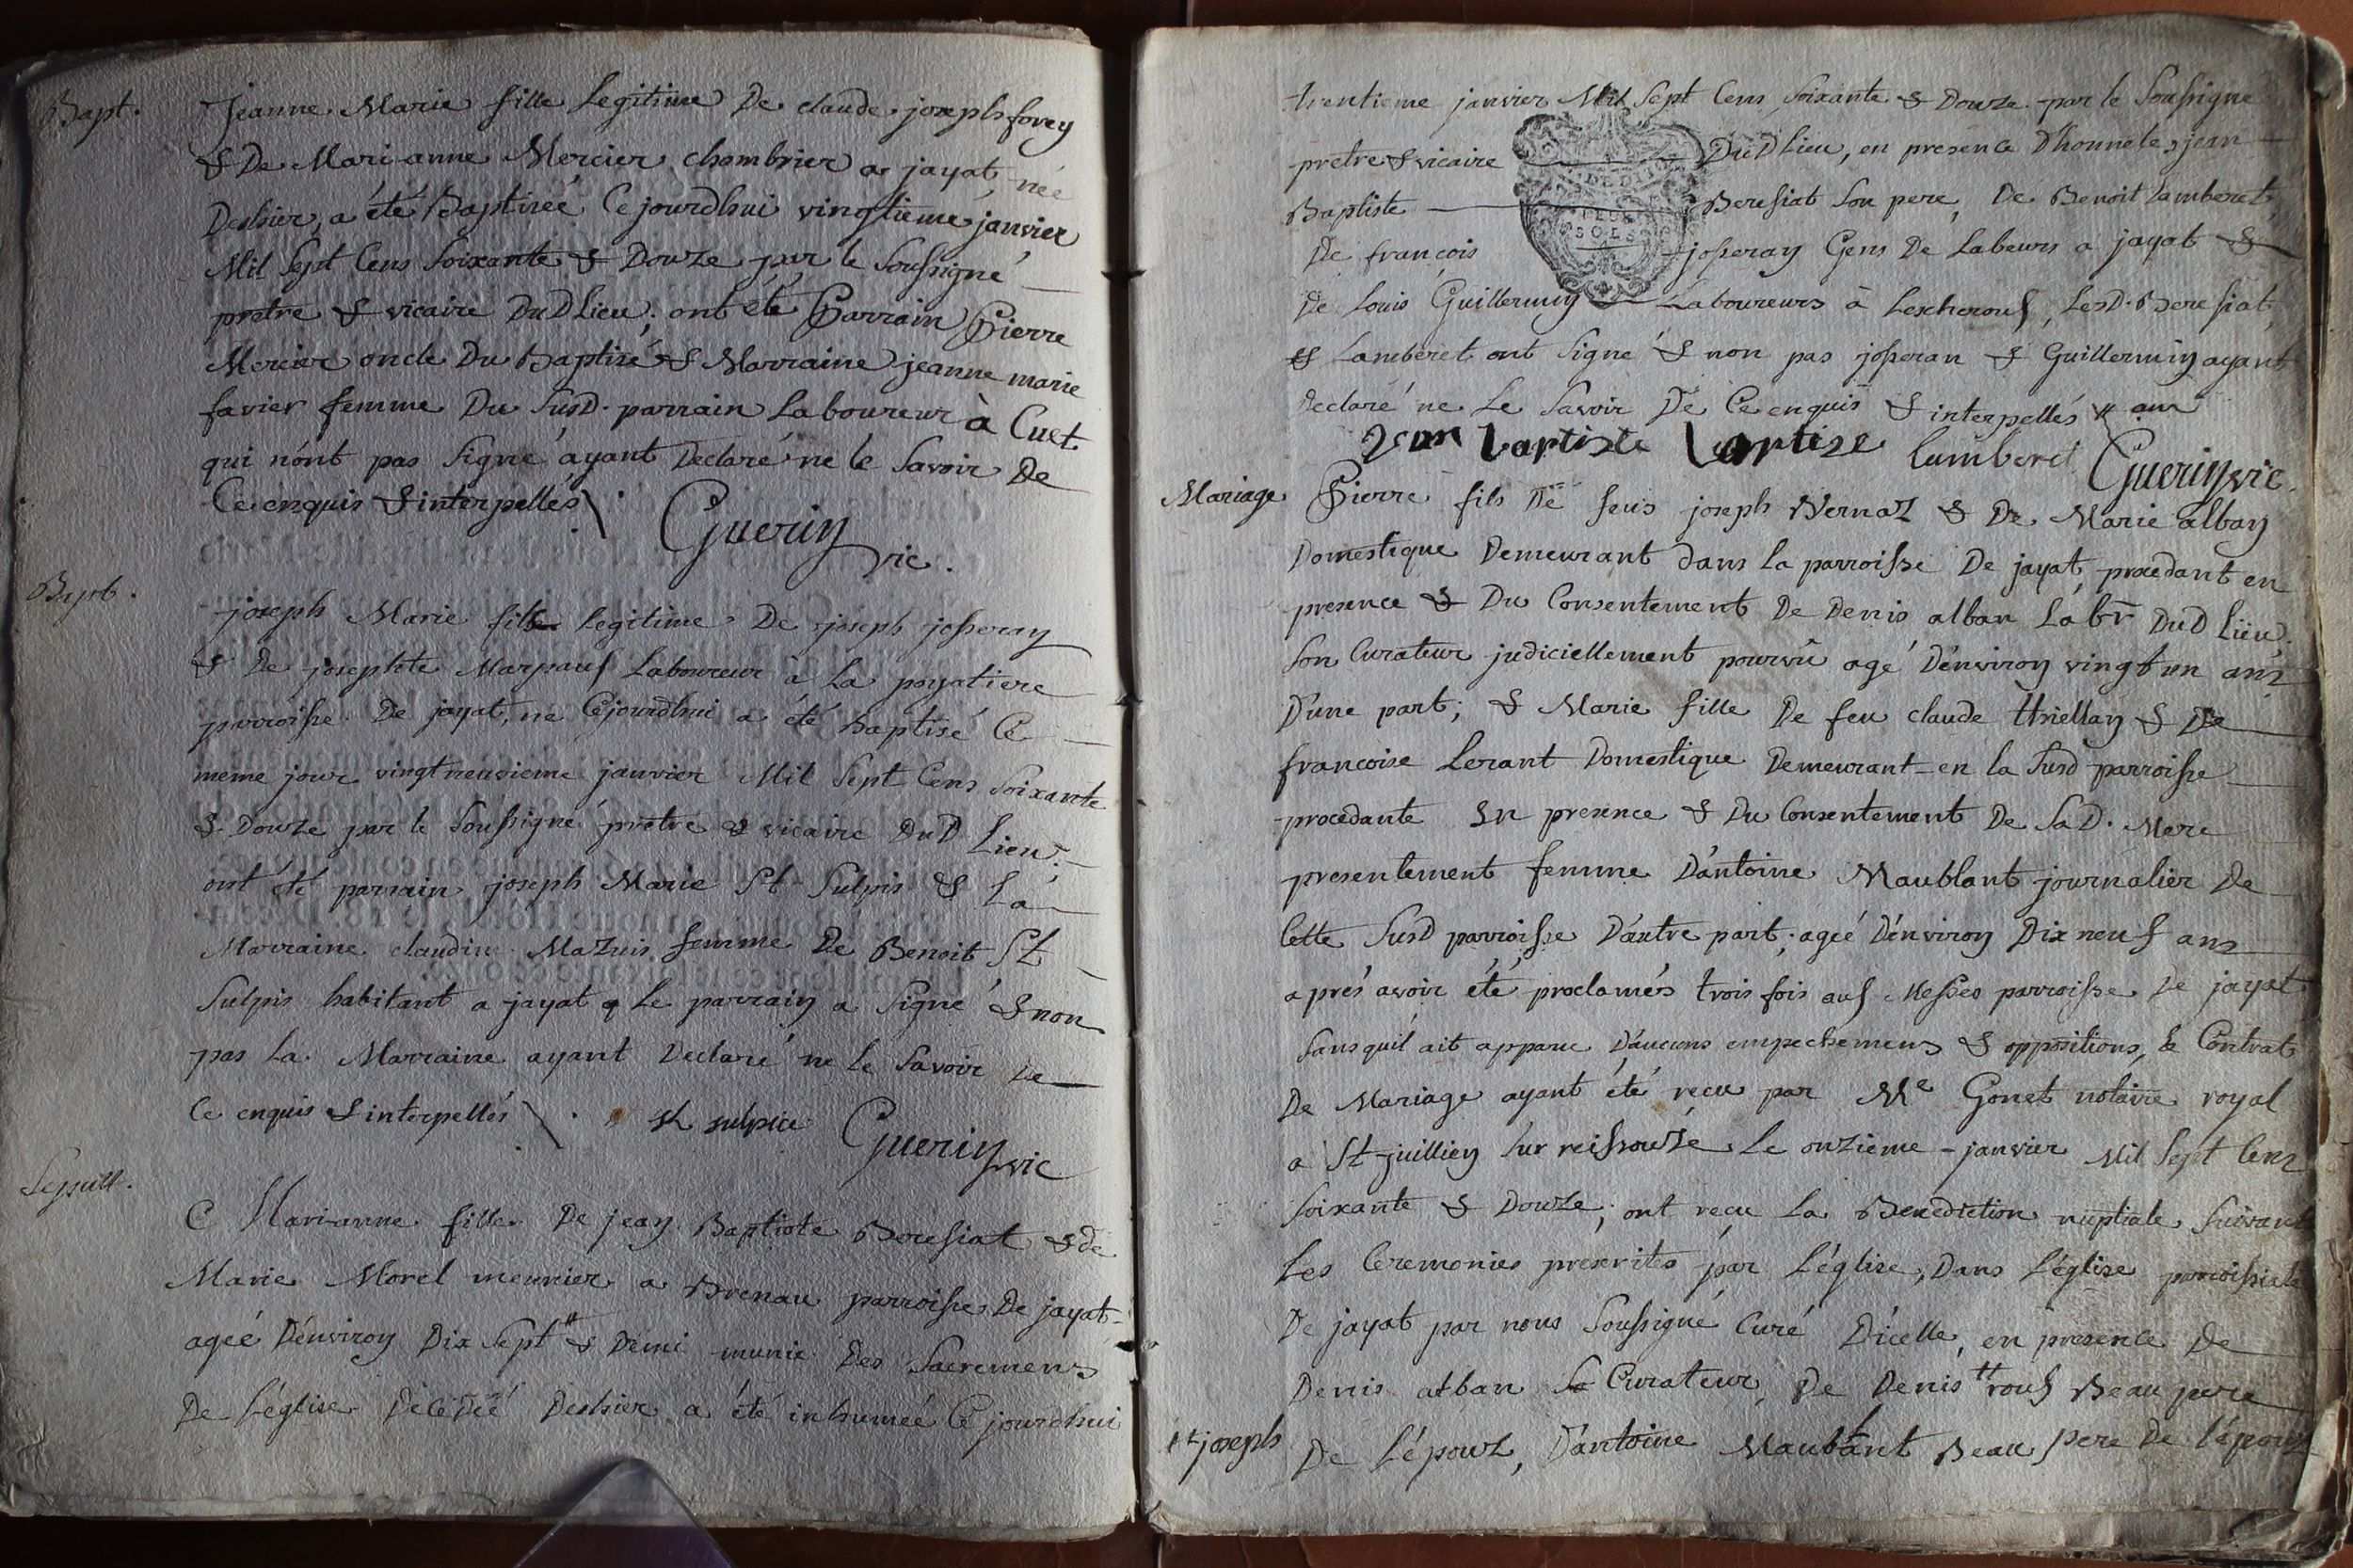 Bapt.
Jeanne Marie fille Legitime De claude joseph forey
& De Marianne Mercier chambrier a jayat, née
Deshier, a été Baptiseé Cejourdhui vingtieme janvier
Mil Sept Cens Soixante & Douze par le Soussigné
pretre & vicaire DuD lieu; ont été Parrain Pierre
Mercier oncle Du Baptisé & Marraine jeanne marie
favier femme Du SusD. parrain Laboureur à Cuet
qui n'ont pas Signé ayant Declaré ne le Savoir De
Ce enquis & interpellés
Guerin
vic.
Bapt.
joseph Marie fils legitime De joseph josseran
& De josephte Marpauf Laboureur à La poyatiere
parroisse De jayat, ne Cejourdhui a été baptisé Ce
meme jour vingtneuvieme janvier Mil Sept Cens Soixante
& Douze par le Soussigné pretre & vicaire DuD Lieu;
ont été parrain joseph Marie St Sulpis & La
Marraine claudine Mazuis femme De Benoit St
Sulpis habitant a jayat Le parrain a Signé & non
pas La Marraine ayant Declaré ne le Savoir De
Ce enquis & interpellés
st sulpice Guerin vic
Sepult.
Marianne fille De jean Baptiste Beresiat & de
Marie Morel meunier a Brenau parroisse De jayat
ageé D'environ Dix Sept & Demi munie Des Sacremens
De L'église Décédeé Deshier a été inhumeé Cejourdhui
trentieme janvier Mil Sept Cens Soixante & Douze par le Soussigné
pretre & vicaire DuD lieu, en presence D'honnete jean
Baptiste Beresiat Son pere, De Benoit Lamberet,
De françois josseran Gens De Labeurs a jayat &
De Louis Guillermin Laboureurs à Lescherouf, LesD. Beresiat
& Lamberet ont Signé & non pas josseran & Guillermin ayant
Declaré ne Le Savoir De Ce enquis & interpellés
Lamberet Guerin vic.
Mariage
Pierre fils De feus joseph Bernaz & De Marie alban
Domestique Demeurant dans La parroisse De jayat, procedant en
presence & Du Consentement De Denis alban Labr DuD Lieu
Son Curateur judiciellement pourvû agé D'environ vingt un ans
D'une part; & Marie fille De feu claude thiellan & De
francoise Lerant Domestique Demeurant en la SusD parroisse
procedante En presence & Du Consentement De SaD. Mere
presentement femme D'antoine Maublant journalier De
Cette SusD parroisse D'autre part; ageé D'environ Dix neuf ans
aprés avoir été proclamés trois fois auf Messes parroisse De jayat
Sans qu'il ait apparu D'aucuns empechemens & oppositions, Le Contrat
De Mariage ayant été recu par Me Gonet notaire royal
a St juillien Sur reissouze Le onzieme janvier Mil Sept Cens
Soixante & Douze; ont reçu La Benediction nuptiale Suivant
Les Ceremonies préscrites par L'église, Dans L'église parroissiale
De jayat par nous Soussigné Curé D'icelle, en presence De
Denis alban Curateur, De Denis rouf Beau pere
joseph
De L'épouz, D'antoine Maublant Beau pere De l'épouse